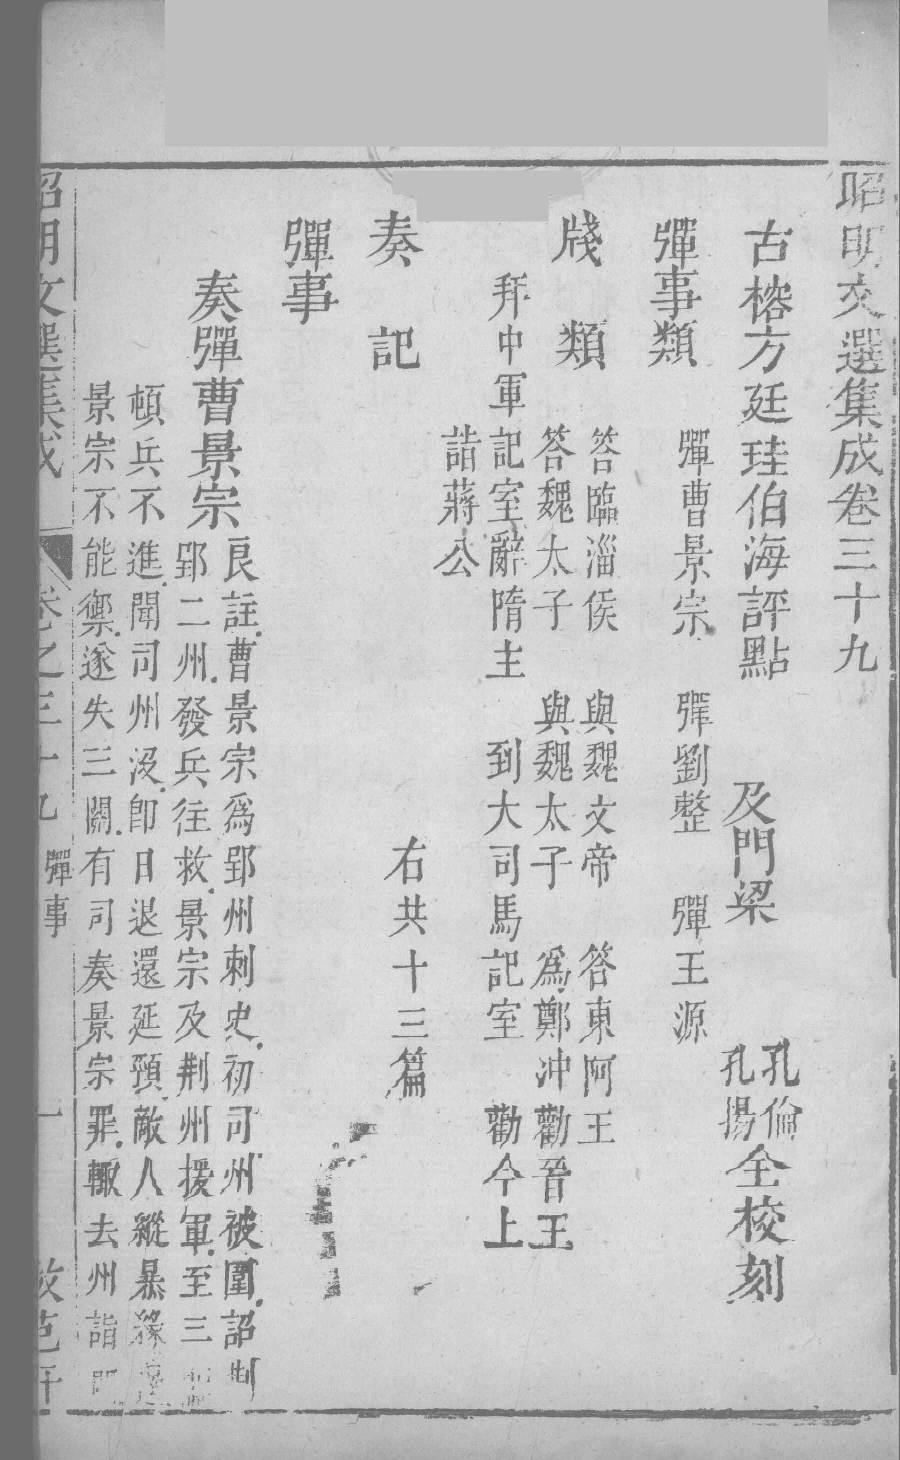 昭明文選集成卷三十九
古榕方廷珪伯海評點 及門梁 孔倫 孔揚 全校刻
彈事類 彈曹景宗 彈劉整 彈王源
牋類 答臨淄侯 與魏文帝 答東阿王
答魏太子 與魏太子 為鄭沖勸晉王
拜中軍記室辭隋主 到大司馬記室 勸今上
奏記 詣蔣公
右共十三篇
彈事
奏彈曹景宗
良註曹景宗為郢州刺史初司州被圍詔
郢二州發兵往救景宗及荆州援軍至三
頓兵不進聞司州沒即日退還延頸敵人縱暴
景宗不能禦遂失三關有司奏景宗罪輙去州詣
昭明文選集成 卷之三十九 彈事 一